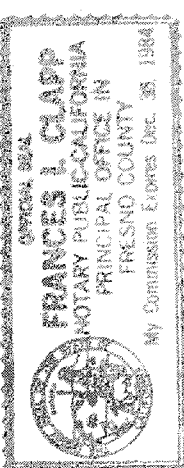 OFFICIAL SEAL
FRANCES L. CLAPP
NOTARY PUBLIC-CALIFORNIA
PRINCIPAL OFFICE IN
FRESNO COUNTY
My Commission Expires Dec. 1984